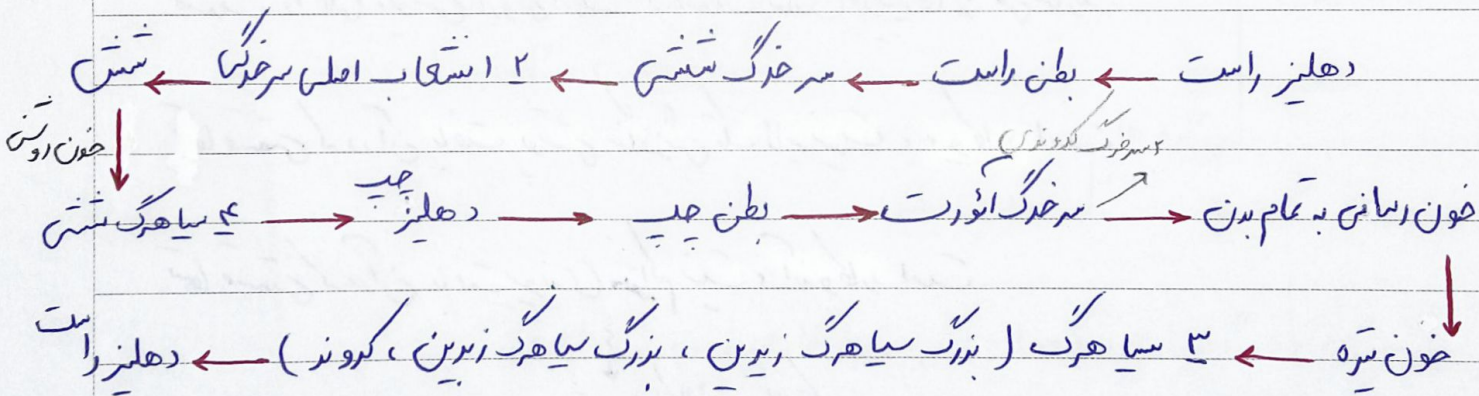 دهلیز راست ← بطن راست ← سرخرگ ششی ← ۲ انشعاب اصلی سرخرگ ← شش
خون روشن
۲ سرخرگ کرونری
۴ سیاهرگ ششی → دهلیز چپ → بطن چپ → سرخرگ آئورت → خون رسانی به تمام بدن
خون تیره ← ۳ سیاهرگ (بزرگ سیاهرگ زیرین ، بزرگ سیاهرگ زبرین ، کروند) ← دهلیز راست